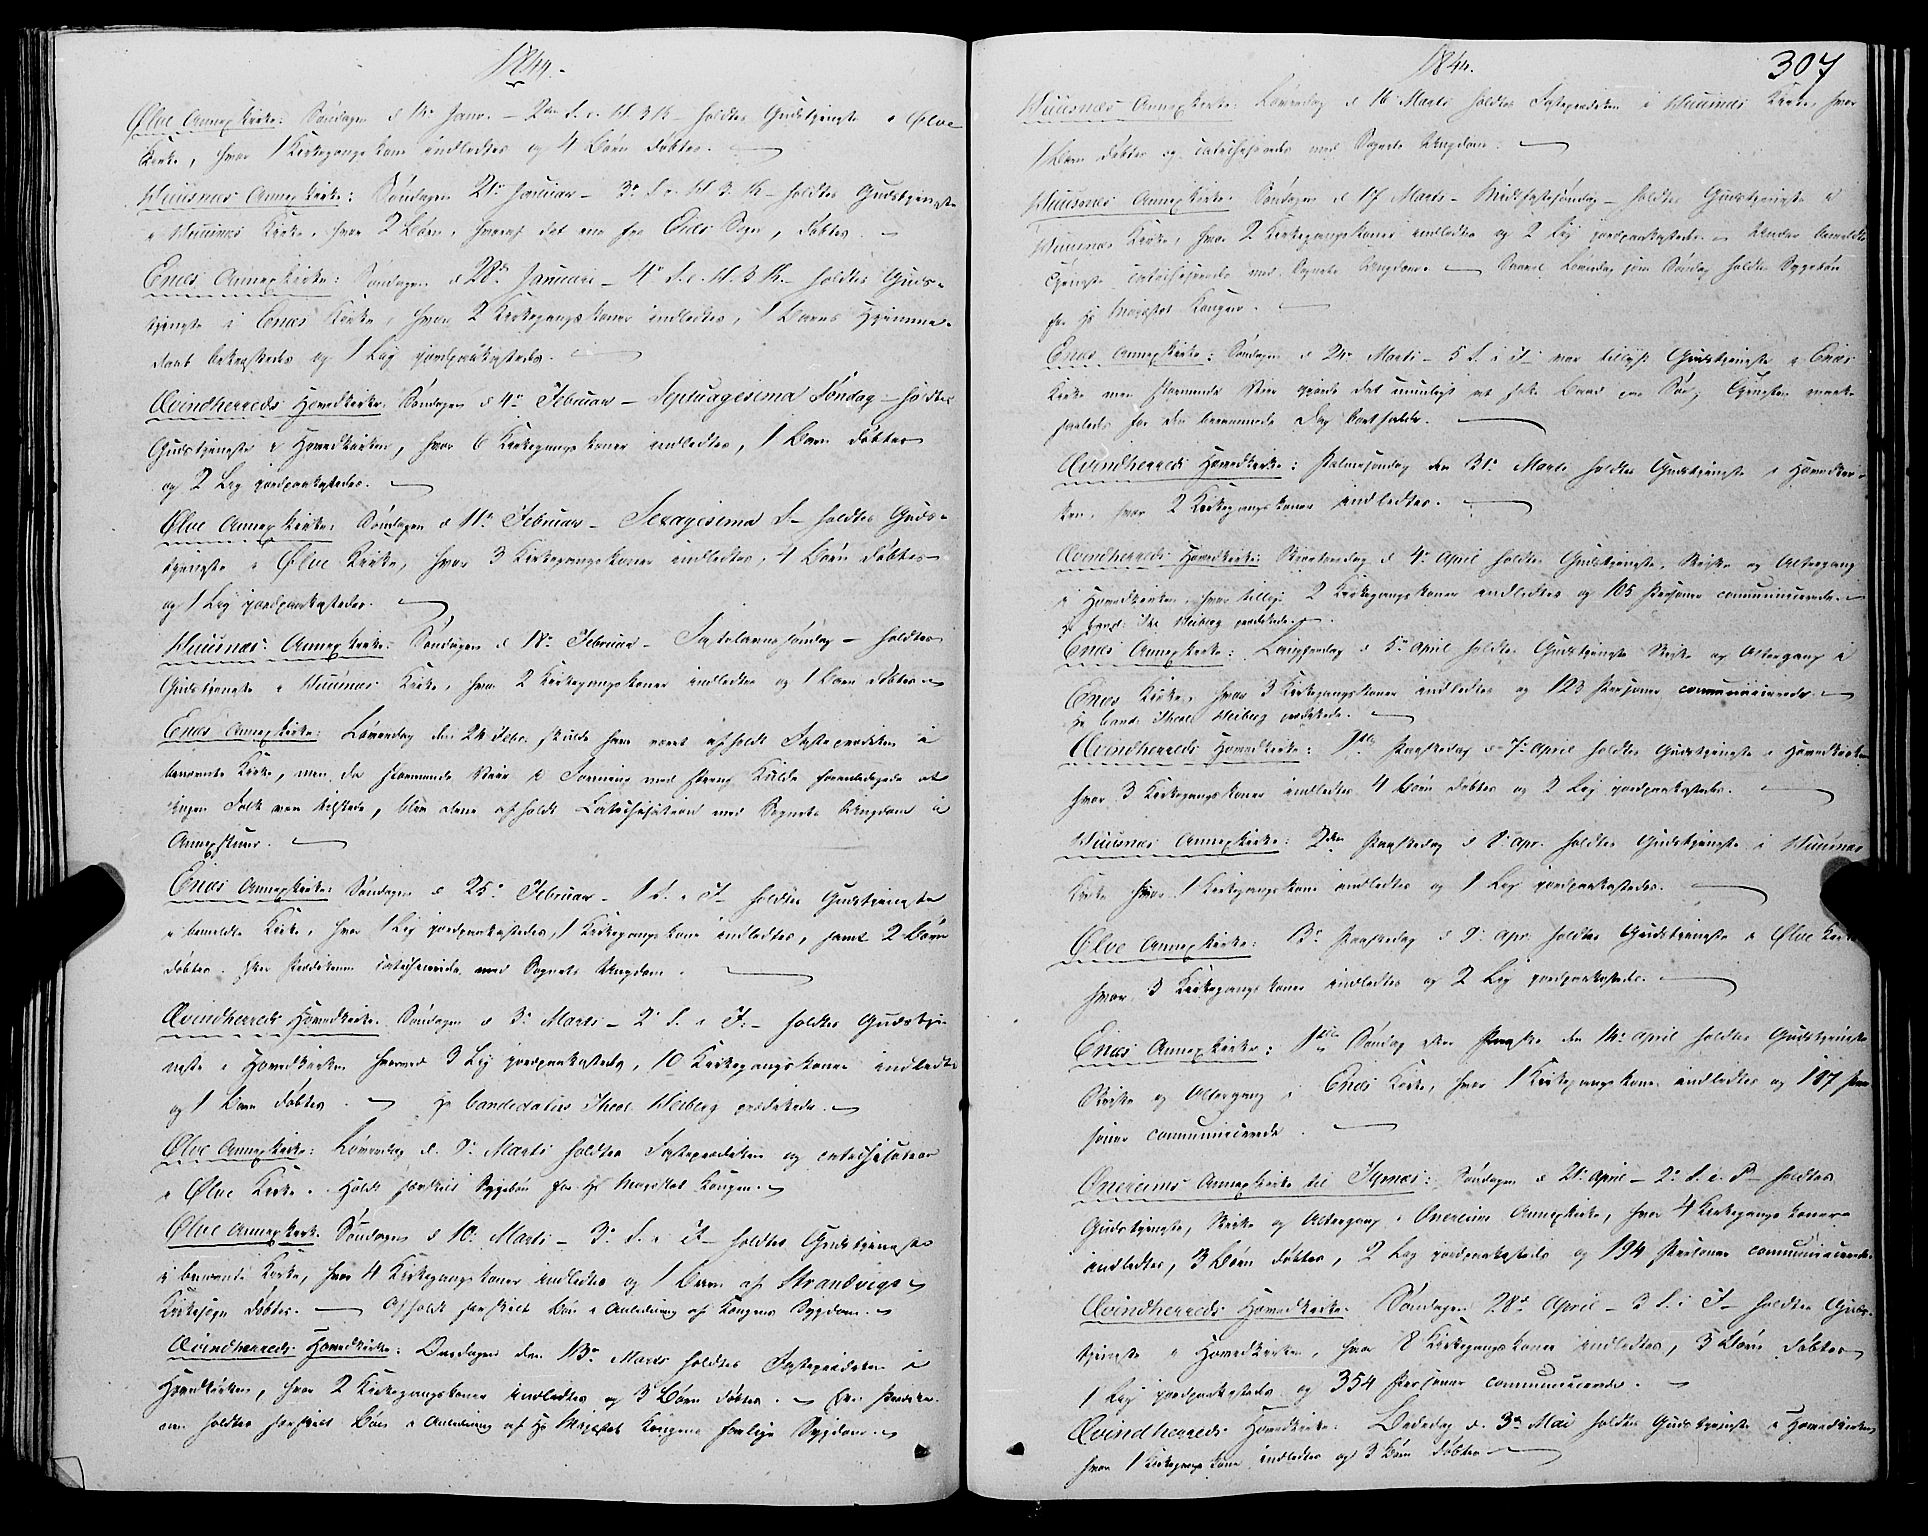 1844.
Ølve Annexkirke: Søndagen d 14de Janr. – 2den S. e. H. 3 K. – holdtes Gudstjeneste i Ølve
Kirke, hvor 1 Kirkegangskone indledtes og 4 Børn døbtes.
Huusnæs Annexkirke: Søndagen 21de Januar – 3die S. e. H. 3 K. – holdtes Gudstjeneste
i Huusnæs Kirke, hvor 2 Børn, hvoraf det ene fra Enæs Sogn, døbtes.
Enæs Annexkirke: Søndagen d 28de Januari – 4de S. e. H. 3 K. – holdtes Guds-
tjeneste i Enæs Kirke, hvor 2 Kirkegangskoner indledtes, 1 Barns Hjemme-
daab bekræftedes og 1 Lig jordpaakastedes.
Qvindherreds Hovedkirke. Søndagen d 4de Februar – Septuagesima Søndag – holdtes
Gudstjeneste i Hovedkirken, hvor 6 Kirkegangskoner indledtes, 1 Barn døbtes
og 2 Lig jordpaakastedes.
Ølve Annexkirke: Søndagen d 11te Februar – Sexagesima S – holdtes Guds-
tjeneste i Ølve Kirke, hvor 3 Kirkegangskoner indledtes, 4 Børn døbtes
og 1 Lig jordpaakastedes.
Huusnæs Annexkirke. Søndagen d 18de Februar – Fastelavnssøndag – holdtes
Gudstjeneste i Huusnæs Kirke, hvor 2 Kirkegangskoner indledtes og 1 Barn døbtes
Enæs Annexkirke: Løverdag den 24 Febr. skulde have været afholdt Fasteprædiken i
benævnte Kirke, men da stormende Veir med streng Kulde foranledigede at
ingen Folk vare tilstede, blev alene afholdt Catechisation med Sognets Ungdom i
Annexstuen.
Enæs Annexkirke: Søndagen d 25de Februar – 1 S. i F – holdtes Gudstjeneste
i bemeldte Kirke, hvor 1 Lig jordpaakastedes, 1 Kirkegangskone indledtes, samt 2 Børn
døbtes. Efter Prædikenen catechiserede med Sognets Ungdom.
Qvindherreds Hovedkirke. Søndagen d 3die Marts – 2den S. i F. – holdtes Gudstje-
neste i Hovedkirken hvorved 3 Lig jordpaakastedes, 10 Kirkegangskoner indledtes
og 1 Barn døbtes. Hr Candidatus Theol. Heiberg prædikede.
Ølve Annexkirke: Løverdag d. 9de Marts holdtes Fasteprædiken og catechisation
i Ølve Kirke. Holdt særskilt Sygebøn for Hs Majestæt Kongen.
Ølve Annexkirke. Søndagen d 10de Marts – 3die S. i F – holdtes Gudstjeneste
i benævnte Kirke, hvor 4 Kirkegangskoner indledtes og 1 Barn af Strandvigs
Kirkesogn døbtes. Afholdt særskilt Bøn i Anledning af Kongens Sygdom.
Qvindherreds Hovedkirke: Onsdagen den 13de Marts holdtes Fasteprædiken i
Hovedkirken, hvor 2 Kirkegangskoner indledtes og 3 Børn døbtes. Efter Prædike-
nen holdtes særskilt Bøn i Anledning af Hs Majestæt Kongens farlige Sygdom.
1844.
307
Huusnæs Annexkirke: Løverdag d 16 Marts holdtes Fasteprædiken i Huusnæs Kirke, hvor
1 Barn døbtes og catechiseredes med Sognets Ungdom.
Huusnæs Annexkirke. Søndagen d 17 Marts – Midfastesøndag – holdtes Gudstjeneste i
Huusnæs Kirke, hvor 2 Kirkegangskoner indledtes og 2 Lig jordpaakastedes. Under bemeldte
Tjeneste catechiseredes med Sognets Ungdom. Saavel Løverdag som Søndag holdtes Sygebøn
for Hs Majestæt Kongen.
Enæs Annexkirke: Søndagen d 24de Marts – 5 S. i F – var tillyst Gudstjeneste i Enæs
Kirke men stormende Veir gjorde det umuligt at sætte Baad paa Søe, Tjenesten maatte
saaledes for den berammede Dag bortfalde.
Qvindherreds Hovedkirke: Palmesøndag den 31te Marts holdtes Gudstjeneste i Hovedkir-
ken, hvor 2 Kirkegangskoner indledtes.
Qvindherreds Hovedkirke: Skjærtorsdag d 4de April holdtes Gudstjeneste, Skrifte og Altergang
i Hovedkirken, hvor tillige 2 Kirkegangskoner indledtes og 105 Personer communicerede.
Hr Cand. Th. Heiberg prædikede.
Enæs Annexkirke: Langfredag d 5te April holdtes Gudstjeneste Skrifte og Altergang i
Enæs Kirke, hvor 3 Kirkegangskoner indledtes og 123 Personer communicerede.
Hr Cand. Theol. Heiberg prædikede.
Qvindherreds Hovedkirke: 1ste Paaskedag d 7de April holdtes Gudstjeneste i Hovedkirken
hvor 3 Kirkegangskoner indledtes 4 Børn døbtes og 2 Lig jordpaakastedes.
Huusnæs Annexkirke: 2den Paaskedag d 8de Apr. holdtes Gudstjeneste i Huusnæs
Kirke hvor 1 Kirkegangskone indledtes og 1 Lig jordpaakastedes.
Ølve Annexkirke: 3die Paaskedag d 9de Apr. holdtes Gudstjeneste i Ølve Kirke
hvor 3 Kirkegangskoner indledtes og 2 Lig jordpaakastedes.
Enæs Annexkirke: 1ste Søndag efter Paaske den 14de April holdtes Gudstjeneste
Skrifte og Altergang i Enæs Kirke, hvor 1 Kirkegangskone indledtes og 187 Per-
soner communicerede.
Onereims Annexkirke til Tysnæs: Søndagen d 21de April – 2den S. e. P – holdtes
Gudstjeneste, Skrifte og Altergang i Onereim Annexkirke, hvor 4 Kirkegangskoner
indledtes, 3 Børn døbtes, 2 Lig jordpaakastedes og 194 Personer communicerede
Qvindherreds Hovedkirke. Søndagen 28de April – 3 S. i F – holdtes Guds-
tjeneste i Hovedkirken, hvor 8 Kirkegangskoner indledtes, 3 Børn døbtes
1 Lig jordpaakastedes og 354 Personer communicerede.
Qvindherreds Hovedkirke. Bededag d. 3die Mai holdtes Gudstjeneste i Hovedkirken
hvor 1 Kirkegangskone indledtes og 3 Børn døbtes